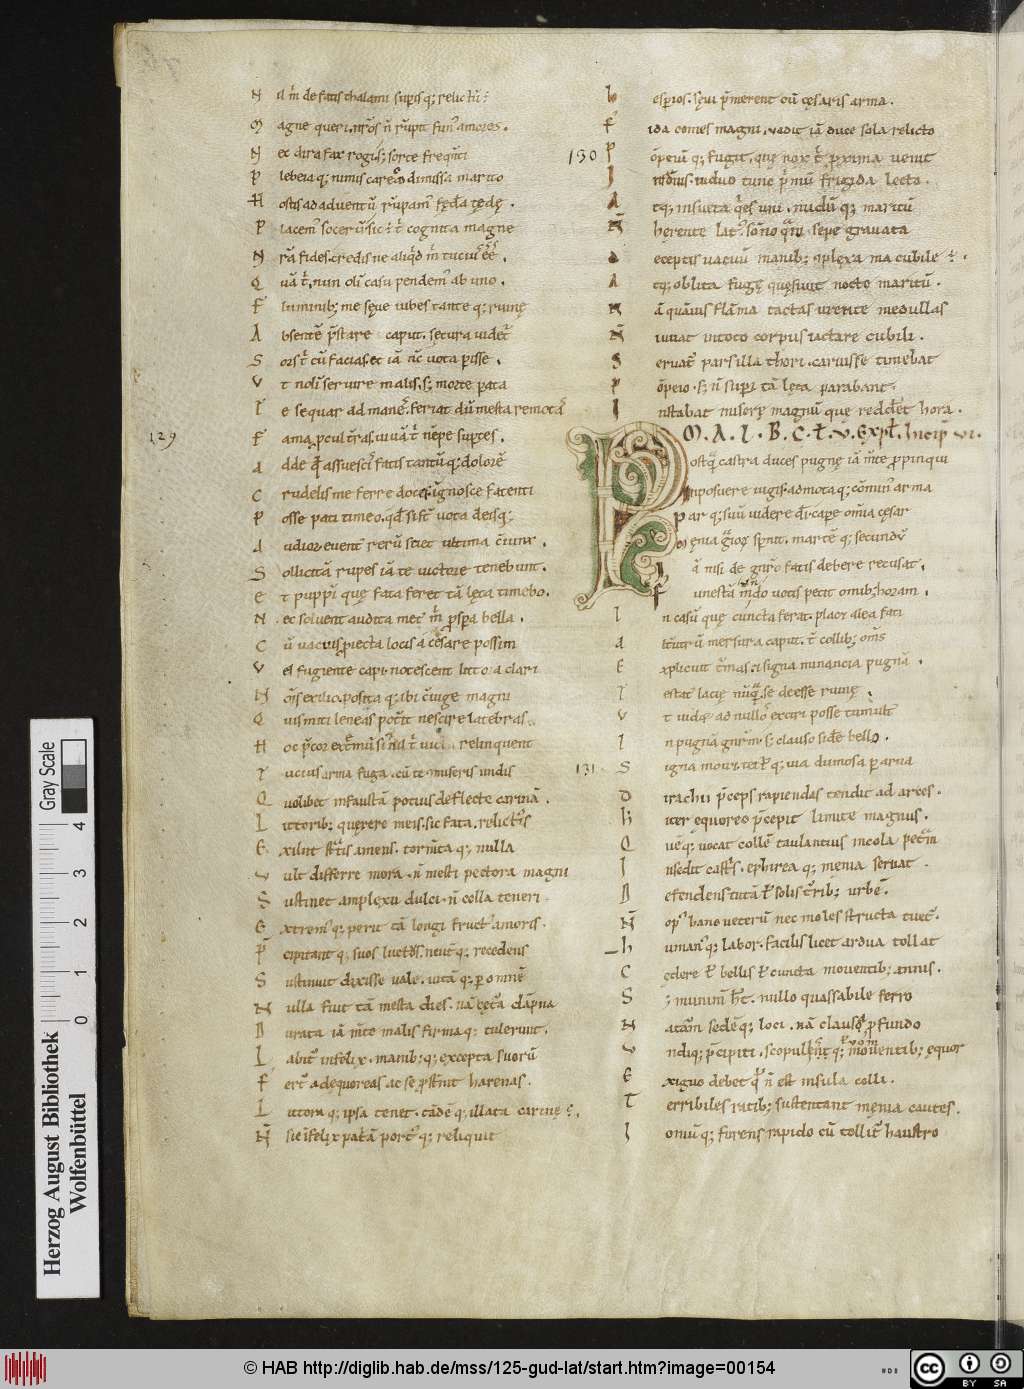 N il m̄ de fatis thalami supis q; relictū:
M agne queri. nr̄os n̄ rūpit fun' amores.
N ec dira fax rogis; sorte freqn̄ti
P lebeia q; nimis careo dimissa marito
H ostis ad aduentū rūpam' fędera tędę.
P lacem' socerū sic: t̄ cognita magne
N r̄a fides. credis ne aliqd m̄ tuciu' ēē.
Q uā t̄, nun olī casu pendem' ab uno.
F lminib; me sęue iubes tante q; ruinę
A bsentē p̄stare caput. secura uidet̄
S ors t̄ cū facias. et iā nc̄ uota pisse.
V t nolī seruire malis. s; morte pata
T e sequar ad mane'. feriat dū mesta remotas
F ama, pcul t̄ras. uiuā t̄ nēpe suptes.
A dde qd̄ assuesc' fatis tantū q; dolorē
C rudelis me ferre doces. ignosce fatenti
P osse pati timeo. qd̄ si st̄ uota deisq;
A udior. euent' rerū sciet ultima c̄iunx.
S ollicitā rupes iā te uictore tenebunt.
E t puppī quę fata feret tā lęta timebo.
N ec soluent audita met' m̄ pspa bella.
C ū vacuis piecta locis a cesare possim
V el fugiente capi. notescent littora clari
N oīs exilio. posita q; ibi c̄iuge magni
Q uis mitileneas pot̄it nescire latebras.
H oc p̄cor extemū si nil t̄ uicta relinquent
T ucius arma fuga. cū te miseris undis
Q uolibet infaustā potius deflecte carinā.
L ittorib; quęrere meis. sic fata. relictis
E xiluit st̄tis amens. tormēta q; nulla
V ult differre mora. n̄ mesti pectora magni
S ustinet amplexu dulci. n̄ colla teneri.
E xtrem' q; perit tā longi fruct' amoris.
P̄ cipitant q; suos luctus. neut' q; recedens
S ustinuit dixisse uale. uitā q; p omnē
N ulla fuit tā mesta dies. nā cęt'a dāpna
D urata iā m̄te malis firma q; tulerunt.
L abit' infelix. manib; q; excepta suorū
F ert' ad ęquoreas ac se pst̄nit harenas.
L ittora q; ipsa tenet. tādē q; illata carinę ē.
N̄ sic īfelix pat'ā port' q; reliquit
h esperios. sęui p̄merent cū cęsaris arma.
F ida comes magni, uadit iā duce sola relicto
130 P ōpeiū q; fugit, quę nox t̄ pxima uenit
A tq; insueta q̄es uni. nudū q; maritū
N̄ hęrente lat'. sōno q̄uis sepe grauata
D eceptis uacuū manib; āplexa ma cubile ē.
A tq; oblita fugę quęsiuit nocte maritū.
N ā quāuis flāma tactas urente medullas
N̄ iuuat intoto corpus iactare cubili.
S eruat' pars illa thori. caruisse timebat
P ōpeio. s; n̄ supi tā lęta parabant.
I nstabat miserę magnū que reddet hora.
M. A. L. B. C. L. V. Expł. Incip VI.
P ostq̄ castra duces pugnę iā m̄te propinqui
Inposuere iugis. admota q; cōmin' arma
Par q; suū uidere di. capere om̄ia cęsar
Męnia gioꝝ spnit. martē q; secundū
a nisi de gnr̄o fatis debere recusat.
F unestā mdo uotis petit omib; horam.
I n casū quę cuncta ferat. placet alea fati
A lt'utrū mersura caput. t̄ collib; om̄s
E xplicuit t̄mas. & signa minancia pugnā.
T estat' lacię nūq̄ se deesse ruinę.
V t uidet ad nullos exciri posse tumultus
I n pugnā gnr̄m. s; clauso fidere bello.
131. S igna mouet. tect' q; uia dumosa p arua
D irachii p̄ceps rapiendas tendit ad arces.
h iter ęquoreo p̄cepit limite magnus.
Q uē q; uocat collē taulantius incola petrā
I nsedit castris. ephirea q; męnia seruat.
D efendens tutā ł' solis t̄rib; urbē.
N̄ op' hanc ueterū nec moles structa tuet'.
h uman' q; labor. facilis licet ardua tollat
C ędere ł' bellis ł' cuncta mouentib; annis.
S ; munim̄ h̄t nullo quassabile ferro
N atām sedē q; loci. nā clausa, pfundo
V ndiq; p̄cipiti, scopulisq; uomentib; ęquor
E xiguo debet q̄ n̄ est insula colli.
T erribiles ratib; sustentant męnia cautes.
I oniū q; furens rapido cū tollit' haustro
129
Herzog August Bibliothek
Wolfenbüttel
Gray Scale
0 1 2 3 4
© HAB http://diglib.hab.de/mss/125-gud-lat/start.htm?image=00154
cc BY SA